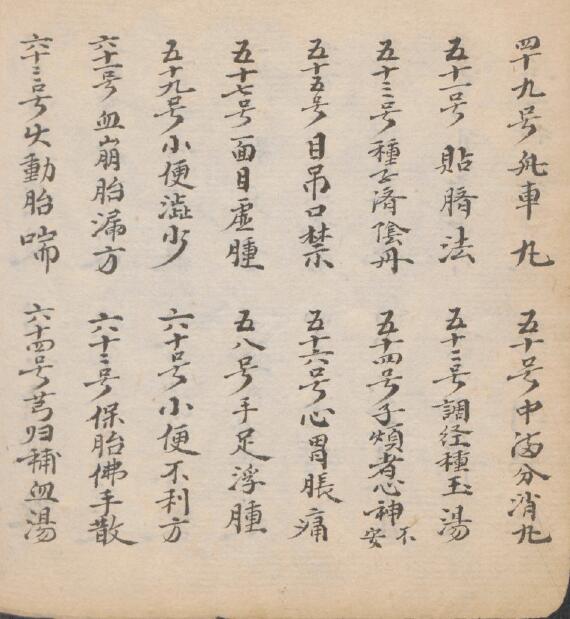 四十九号舟車丸
五十号中满分消丸
五十一号貼臍法
五十二号調经種玉湯
五十三号種子済陰丹
五十四号子煩者心神不安
五十五号目吊口禁
五十六号心胃脹痛
五十七号面目虚腫
五八号手足浮腫
五十九号小便澁少
六十号小便不利方
六十一号血崩胎漏方
六十二号保胎佛手散
六十三号火動胎喘
六十四号芎归補血湯